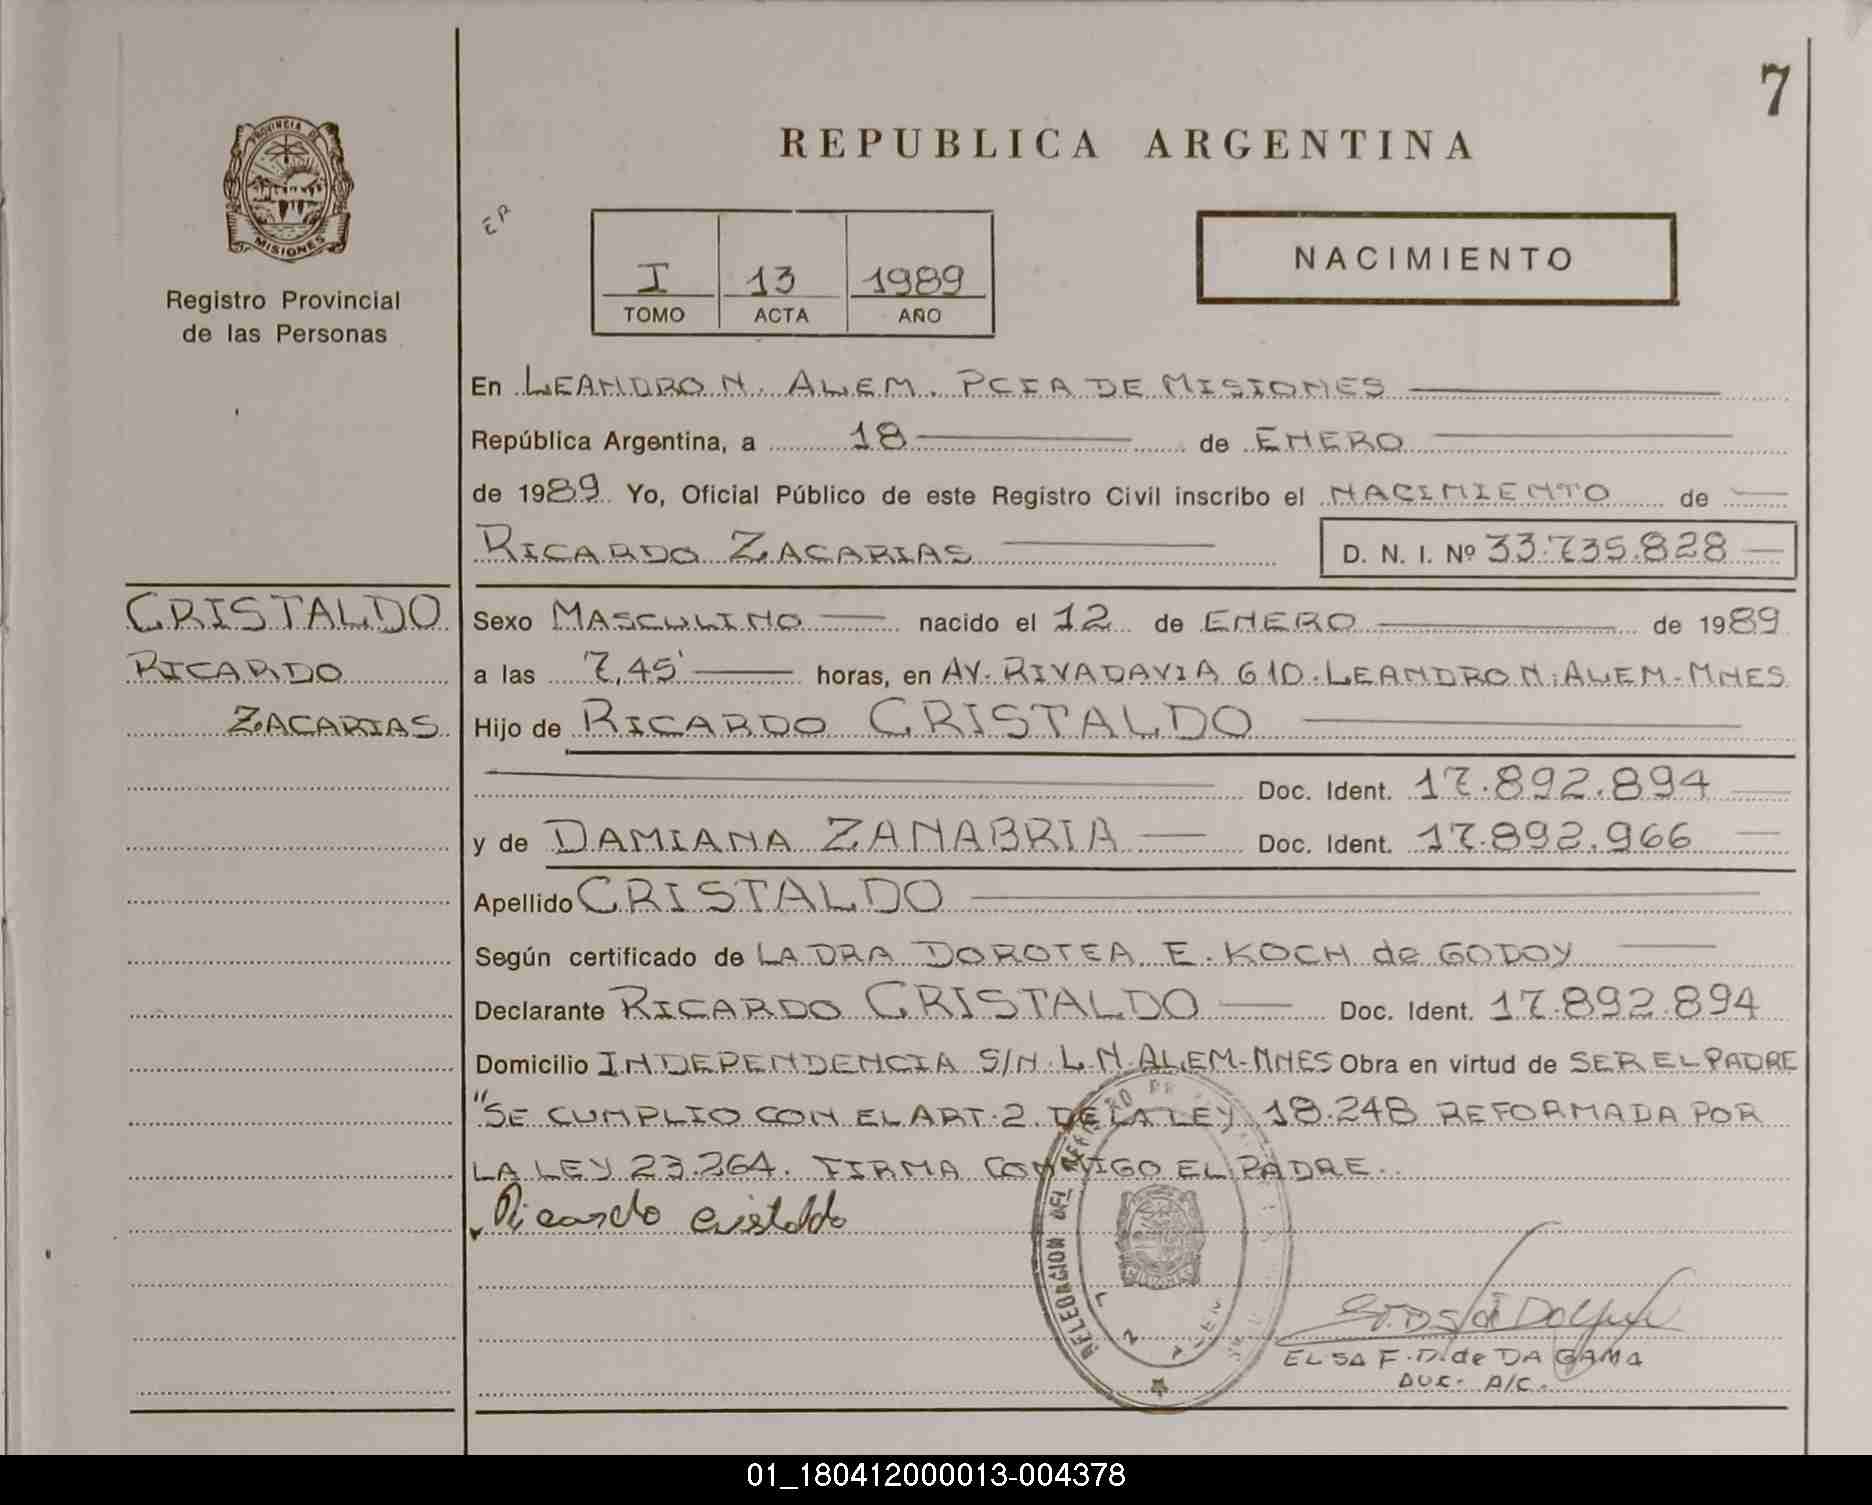 7
PROVINCIA DE
MISIONES
Registro Provincial
de las Personas
REPUBLICA ARGENTINA
ER
I 13 1989
TOMO ACTA AÑO
NACIMIENTO
En LEANDRO N. ALEM. PCIA DE MISIONES
República Argentina, a 18 de ENERO
de 1989 Yo, Oficial Público de este Registro Civil inscribo el NACIMIENTO de
RICARDO ZACARIAS D. N. I. Nº 33.735.828
CRISTALDO
RICARDO
ZACARIAS
Sexo MASCULINO nacido el 12 de ENERO de 1989
a las 7,45' horas, en AV. RIVADAVIA 610. LEANDRO N. ALEM-MNES
Hijo de RICARDO CRISTALDO
Doc. Ident. 17.892.894
y de DAMIANA ZANABRIA Doc. Ident. 17.892.966
Apellido CRISTALDO
Según certificado de LA DRA DOROTEA E. KOCH de GODOY
Declarante RICARDO CRISTALDO Doc. Ident. 17.892.894
Domicilio INDEPENDENCIA S/N. L.N. ALEM-MNES Obra en virtud de SER EL PADRE
"SE CUMPLIO CON EL ART. 2. DE LA LEY 18.248 REFORMADA POR
LA LEY 23.264. FIRMA CONMIGO EL PADRE.
Ricardo Cristaldo
DELEGACION DEL REGISTRO
ELSA F. D. de DA GAMA
AUX. A/C.
01_180412000013-004378